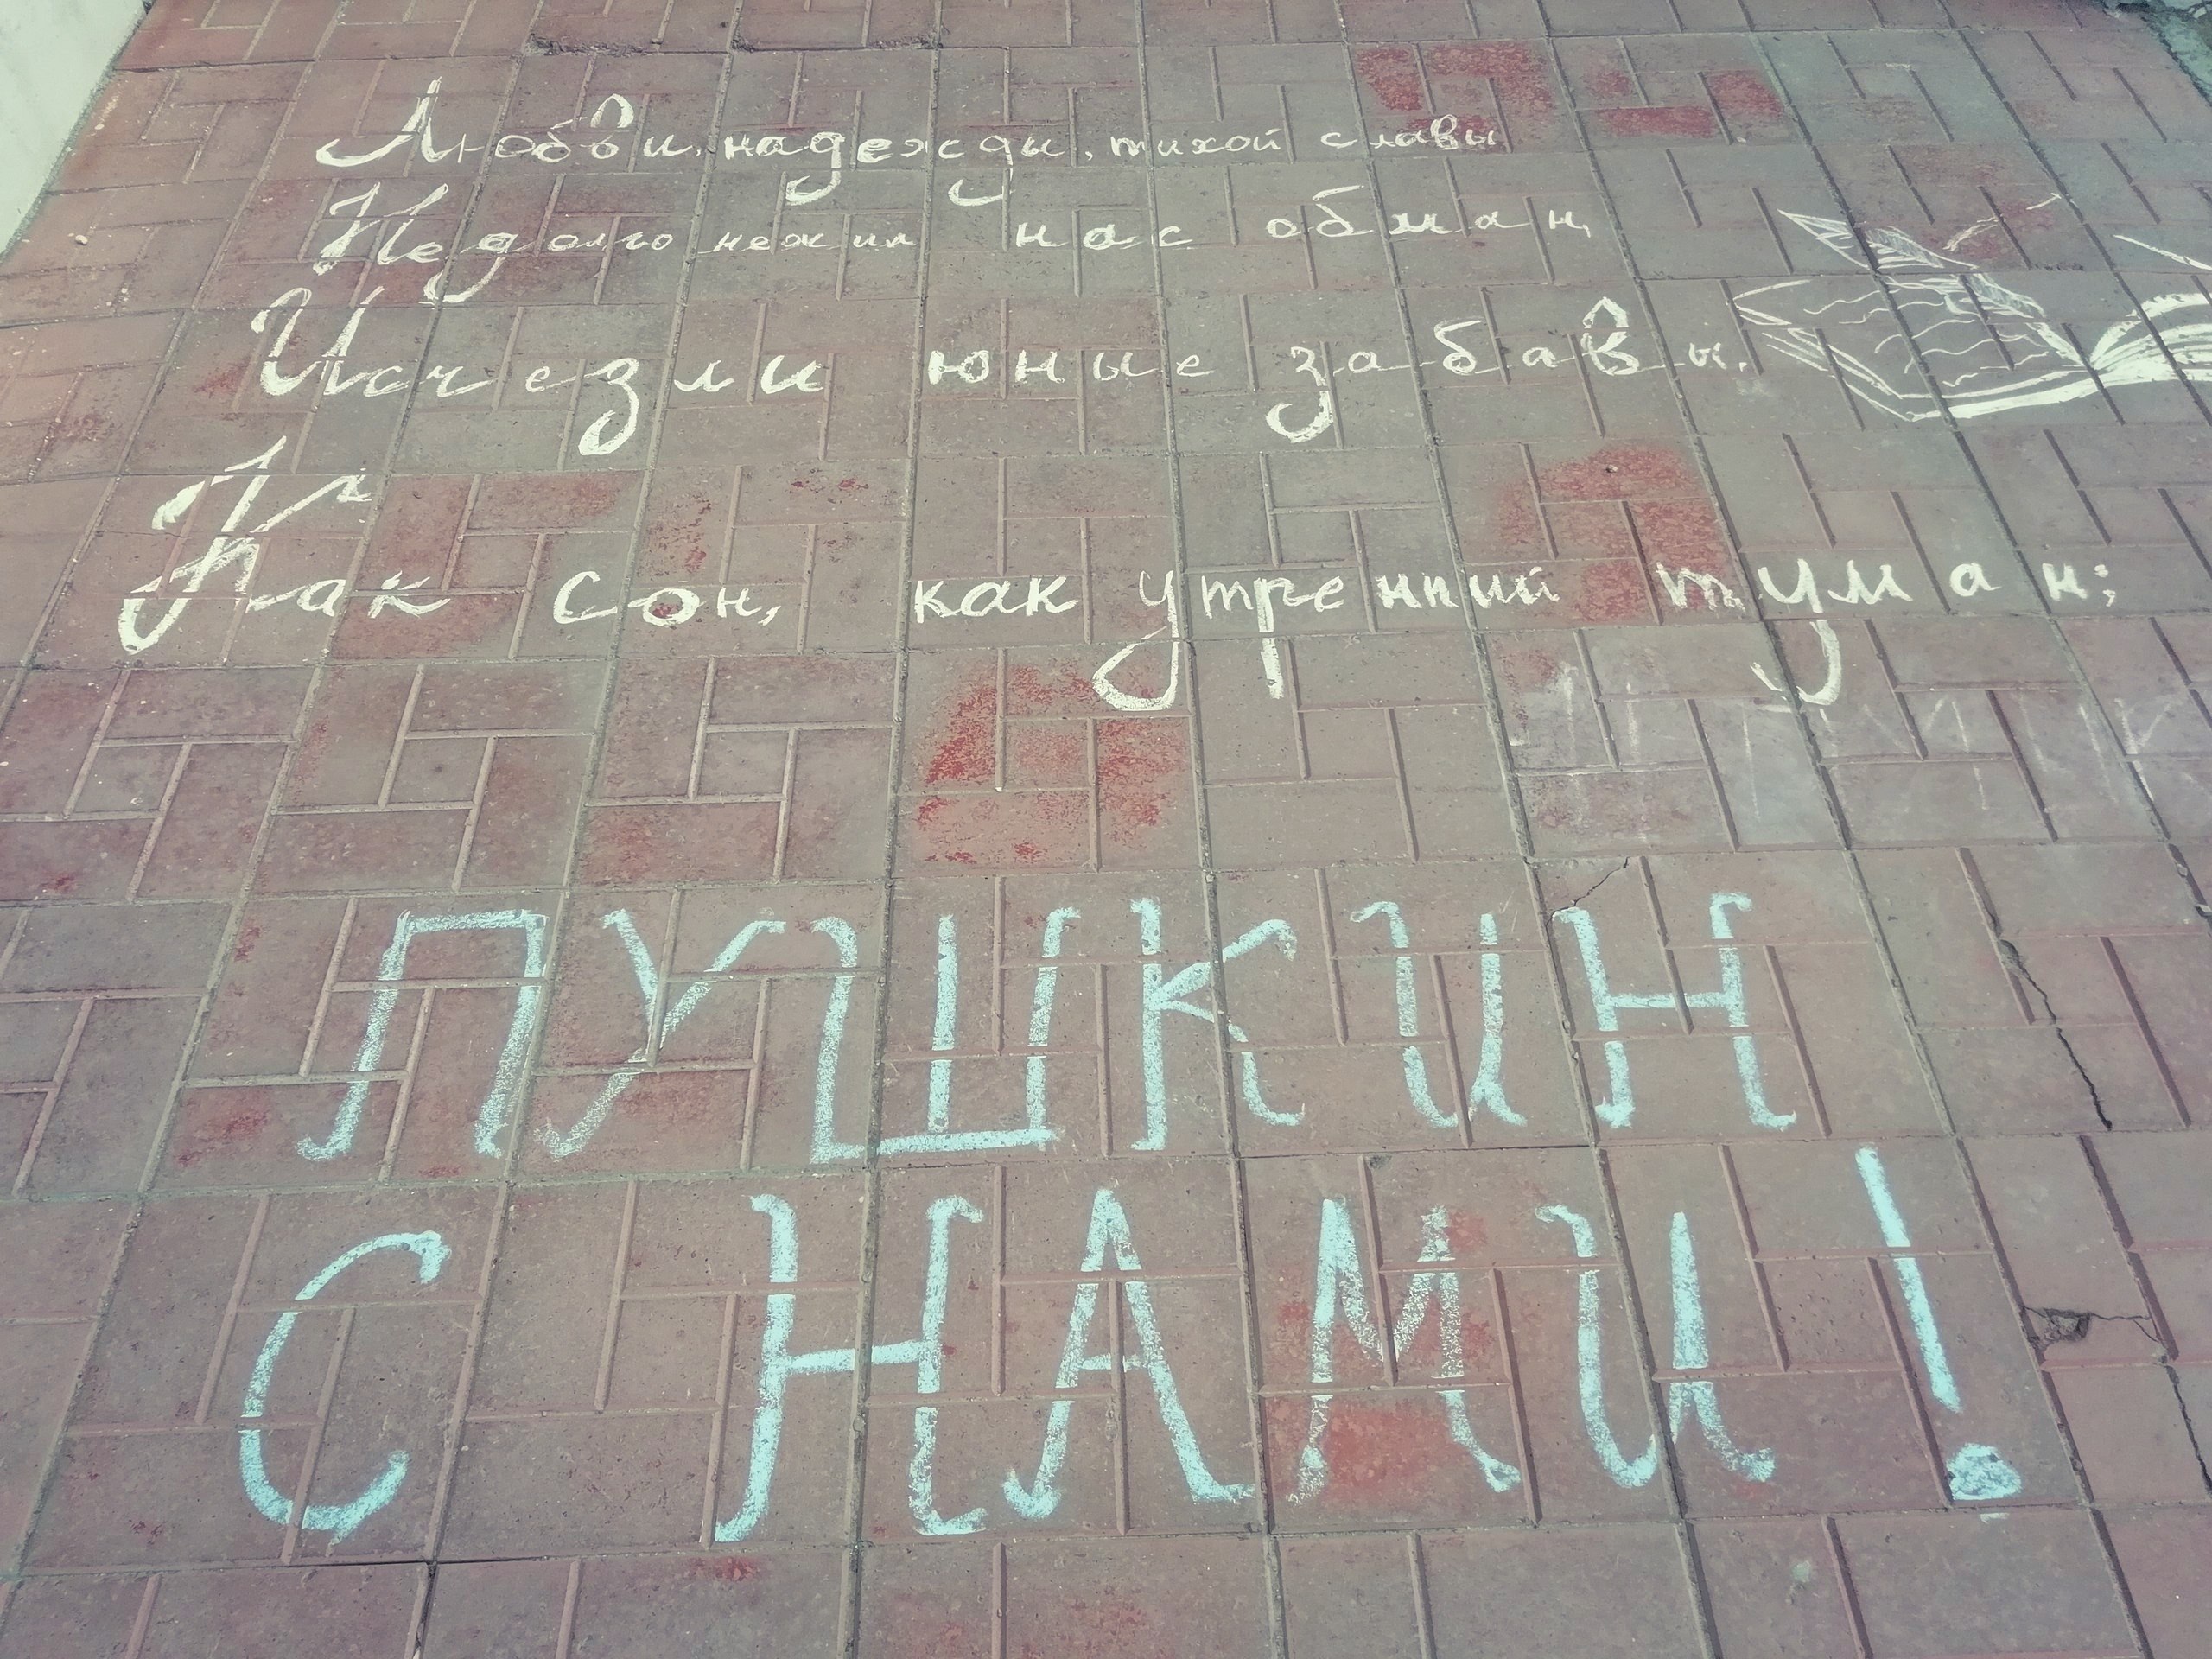 Любви, надежды, тихой славы
Недолго нежил нас обман,
Исчезли юные забавы,
Как сон, как утренний туман;
ПУШКИН
С НАМИ!